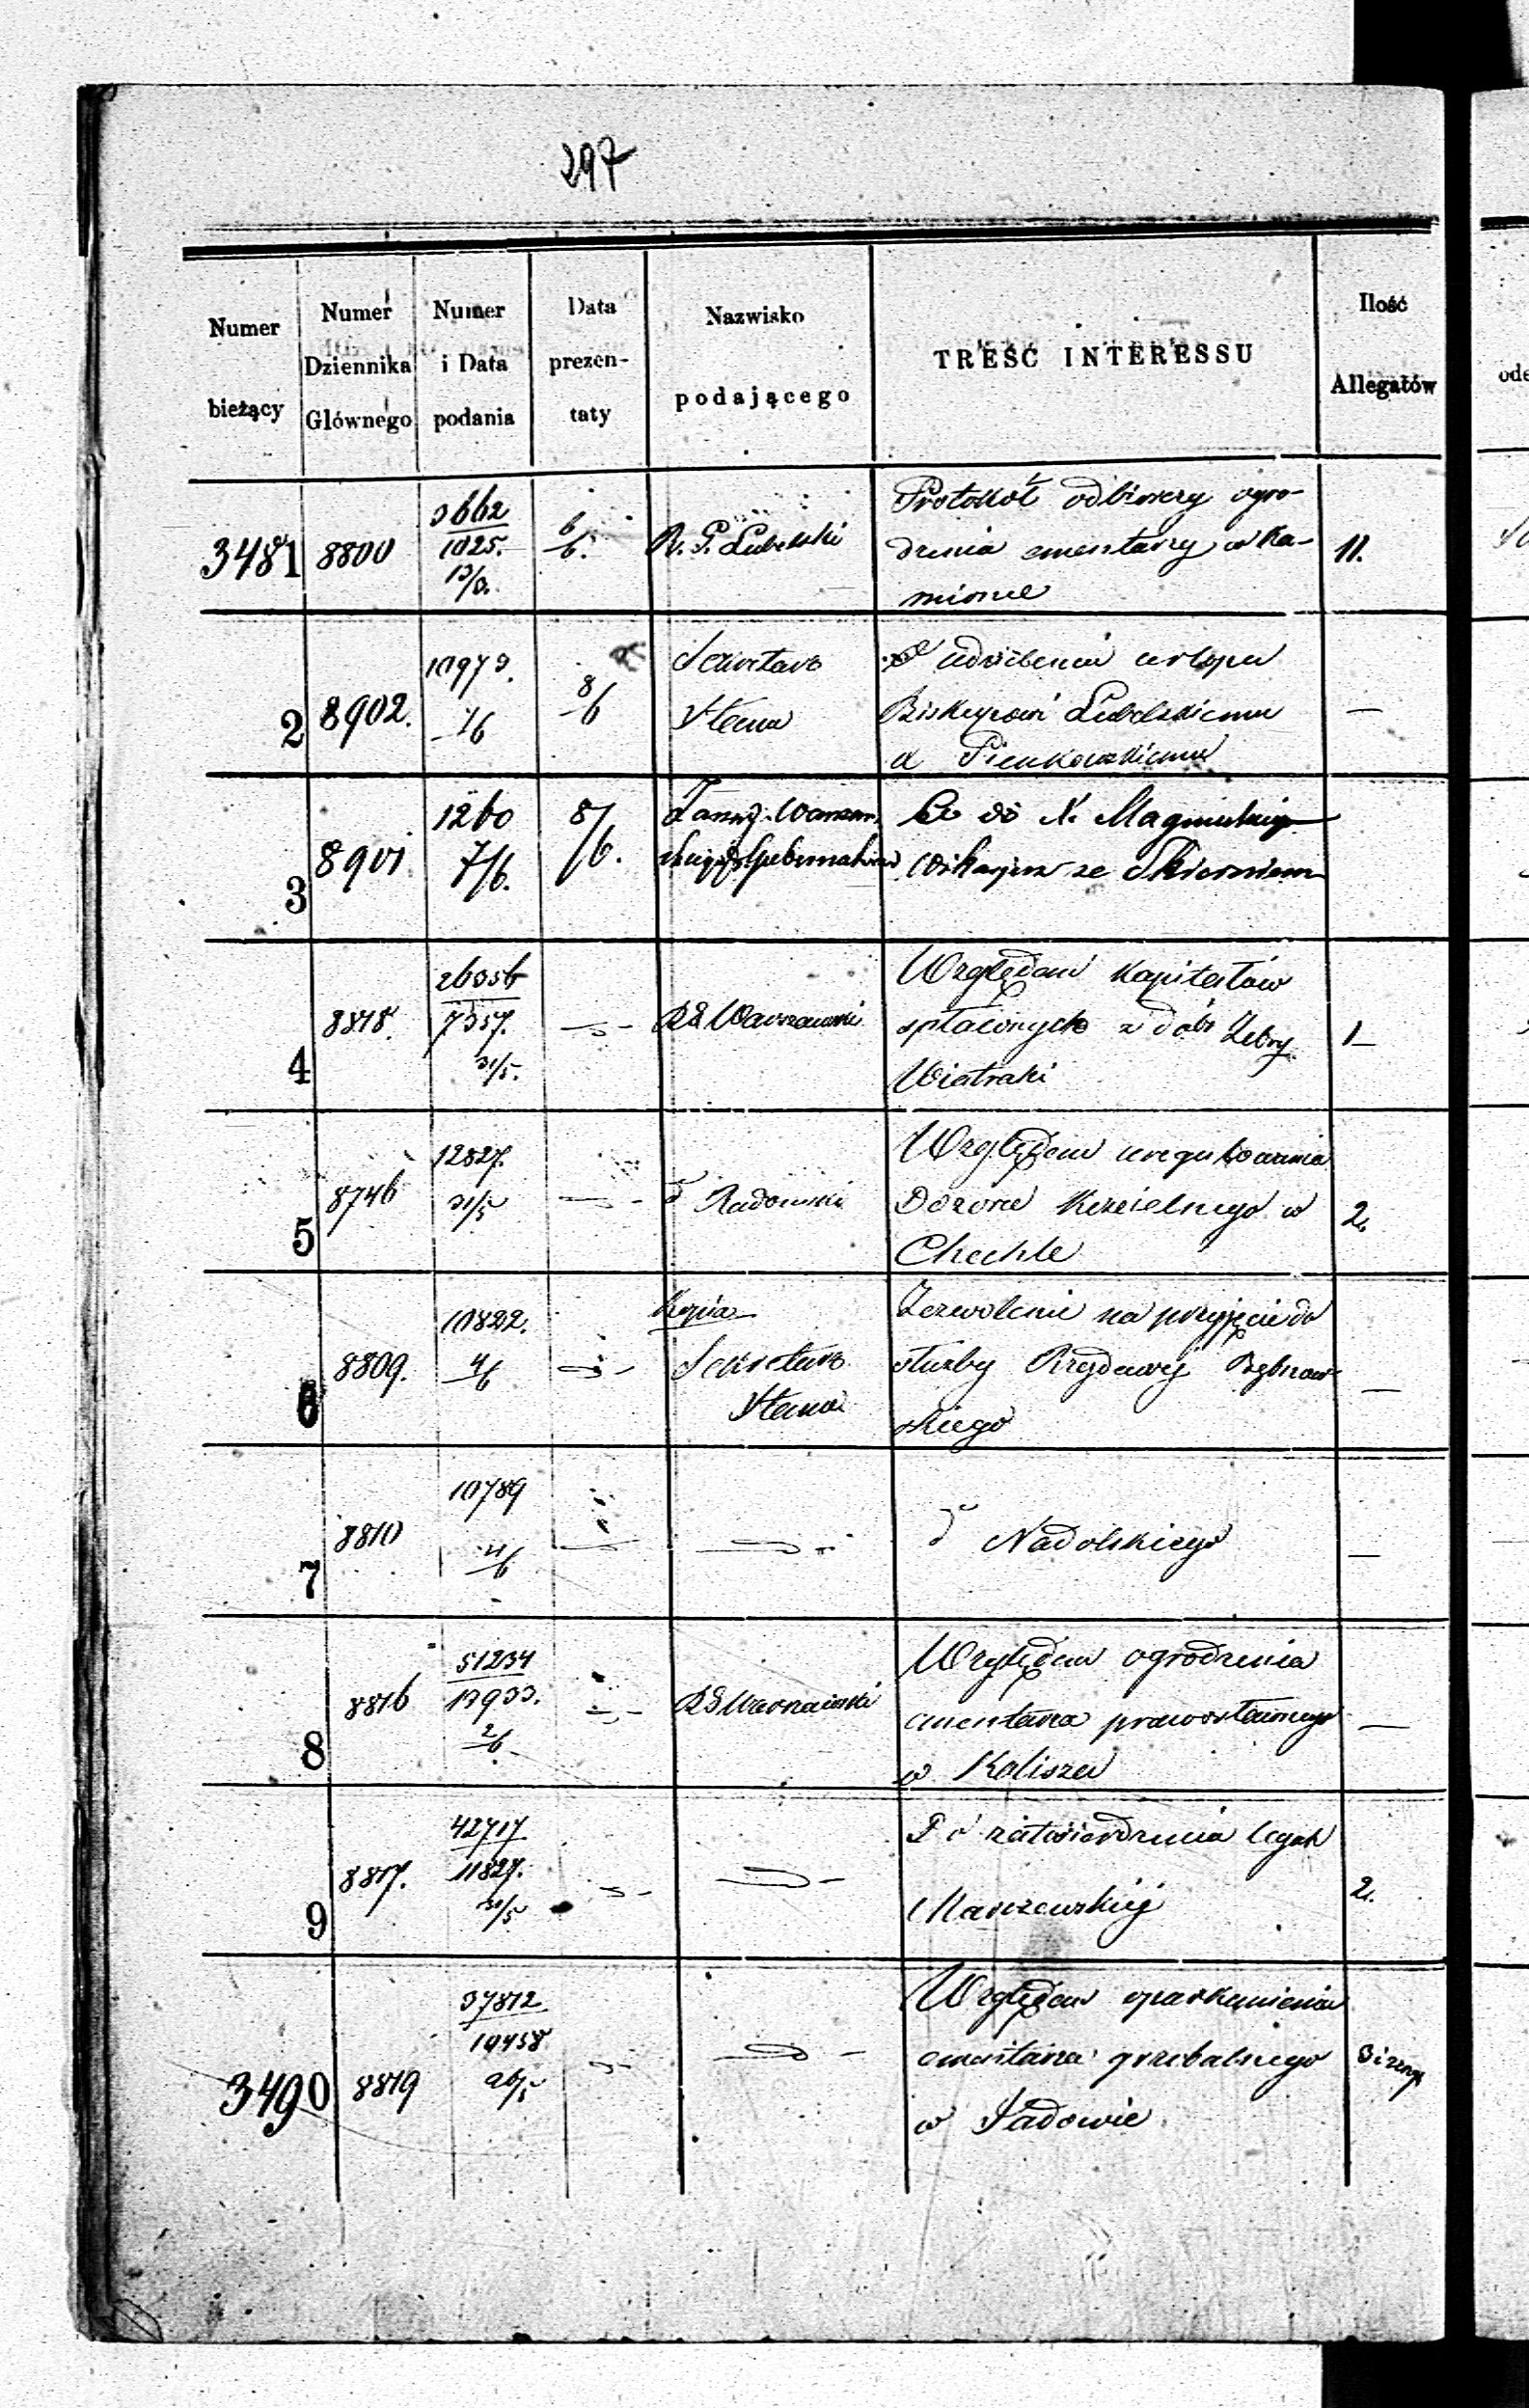 297
Numer bieżący
Numer Dziennika Głównego
Numer i Data podania
Data prezentaty
Nazwisko podającego
TREŚĆ INTERESSU
Ilość Allegatów
3481 8800 3662 6/6. R. G. Lubelski Protokół odbiorczy ogro-
1025. dzenia cmentarzy w Ka- 11.
13/3. mionce
2 8902. 10973. 8/6 Sekretarz udzielenia urlopu
7/6 Stanu Biskupowi Lubelskiemu —
X Pieńkowskiemu
3 8901 1260 8/6. Zarząd Warszaw. Co do X. Magnuskiego
7/6. Wikarjusza ze Skierniewic
4 8818. 26356 R G Warszawski Względem Kapitałów
7357. spłaconych z dóbr Żebry 1
31/5. Wiatraki
5 8746 12827. do Radomski Względem uregulowania
31/5 Dozoru Kościelnego w 2.
Chechle
6 8809. 10822. Kopia Zezwolenie na przyjęcie do
4/6 Sekretarz służby Rządowej —
Stanu skiego
7 8810 10789
4/6 do Nadolskiego —
8 8816 51234 R G Warszawski Względem ogrodzenia
13933. cmentarza prawosławnego —
2/6 w Kaliszu
9 8817. 42717 zatwierdzenia
11827. Marszewskiej 2.
31/5
3490 8819 37812 Względem oparkanienia
10458 cmentarza grzebalnego
26/5 w Sadowie